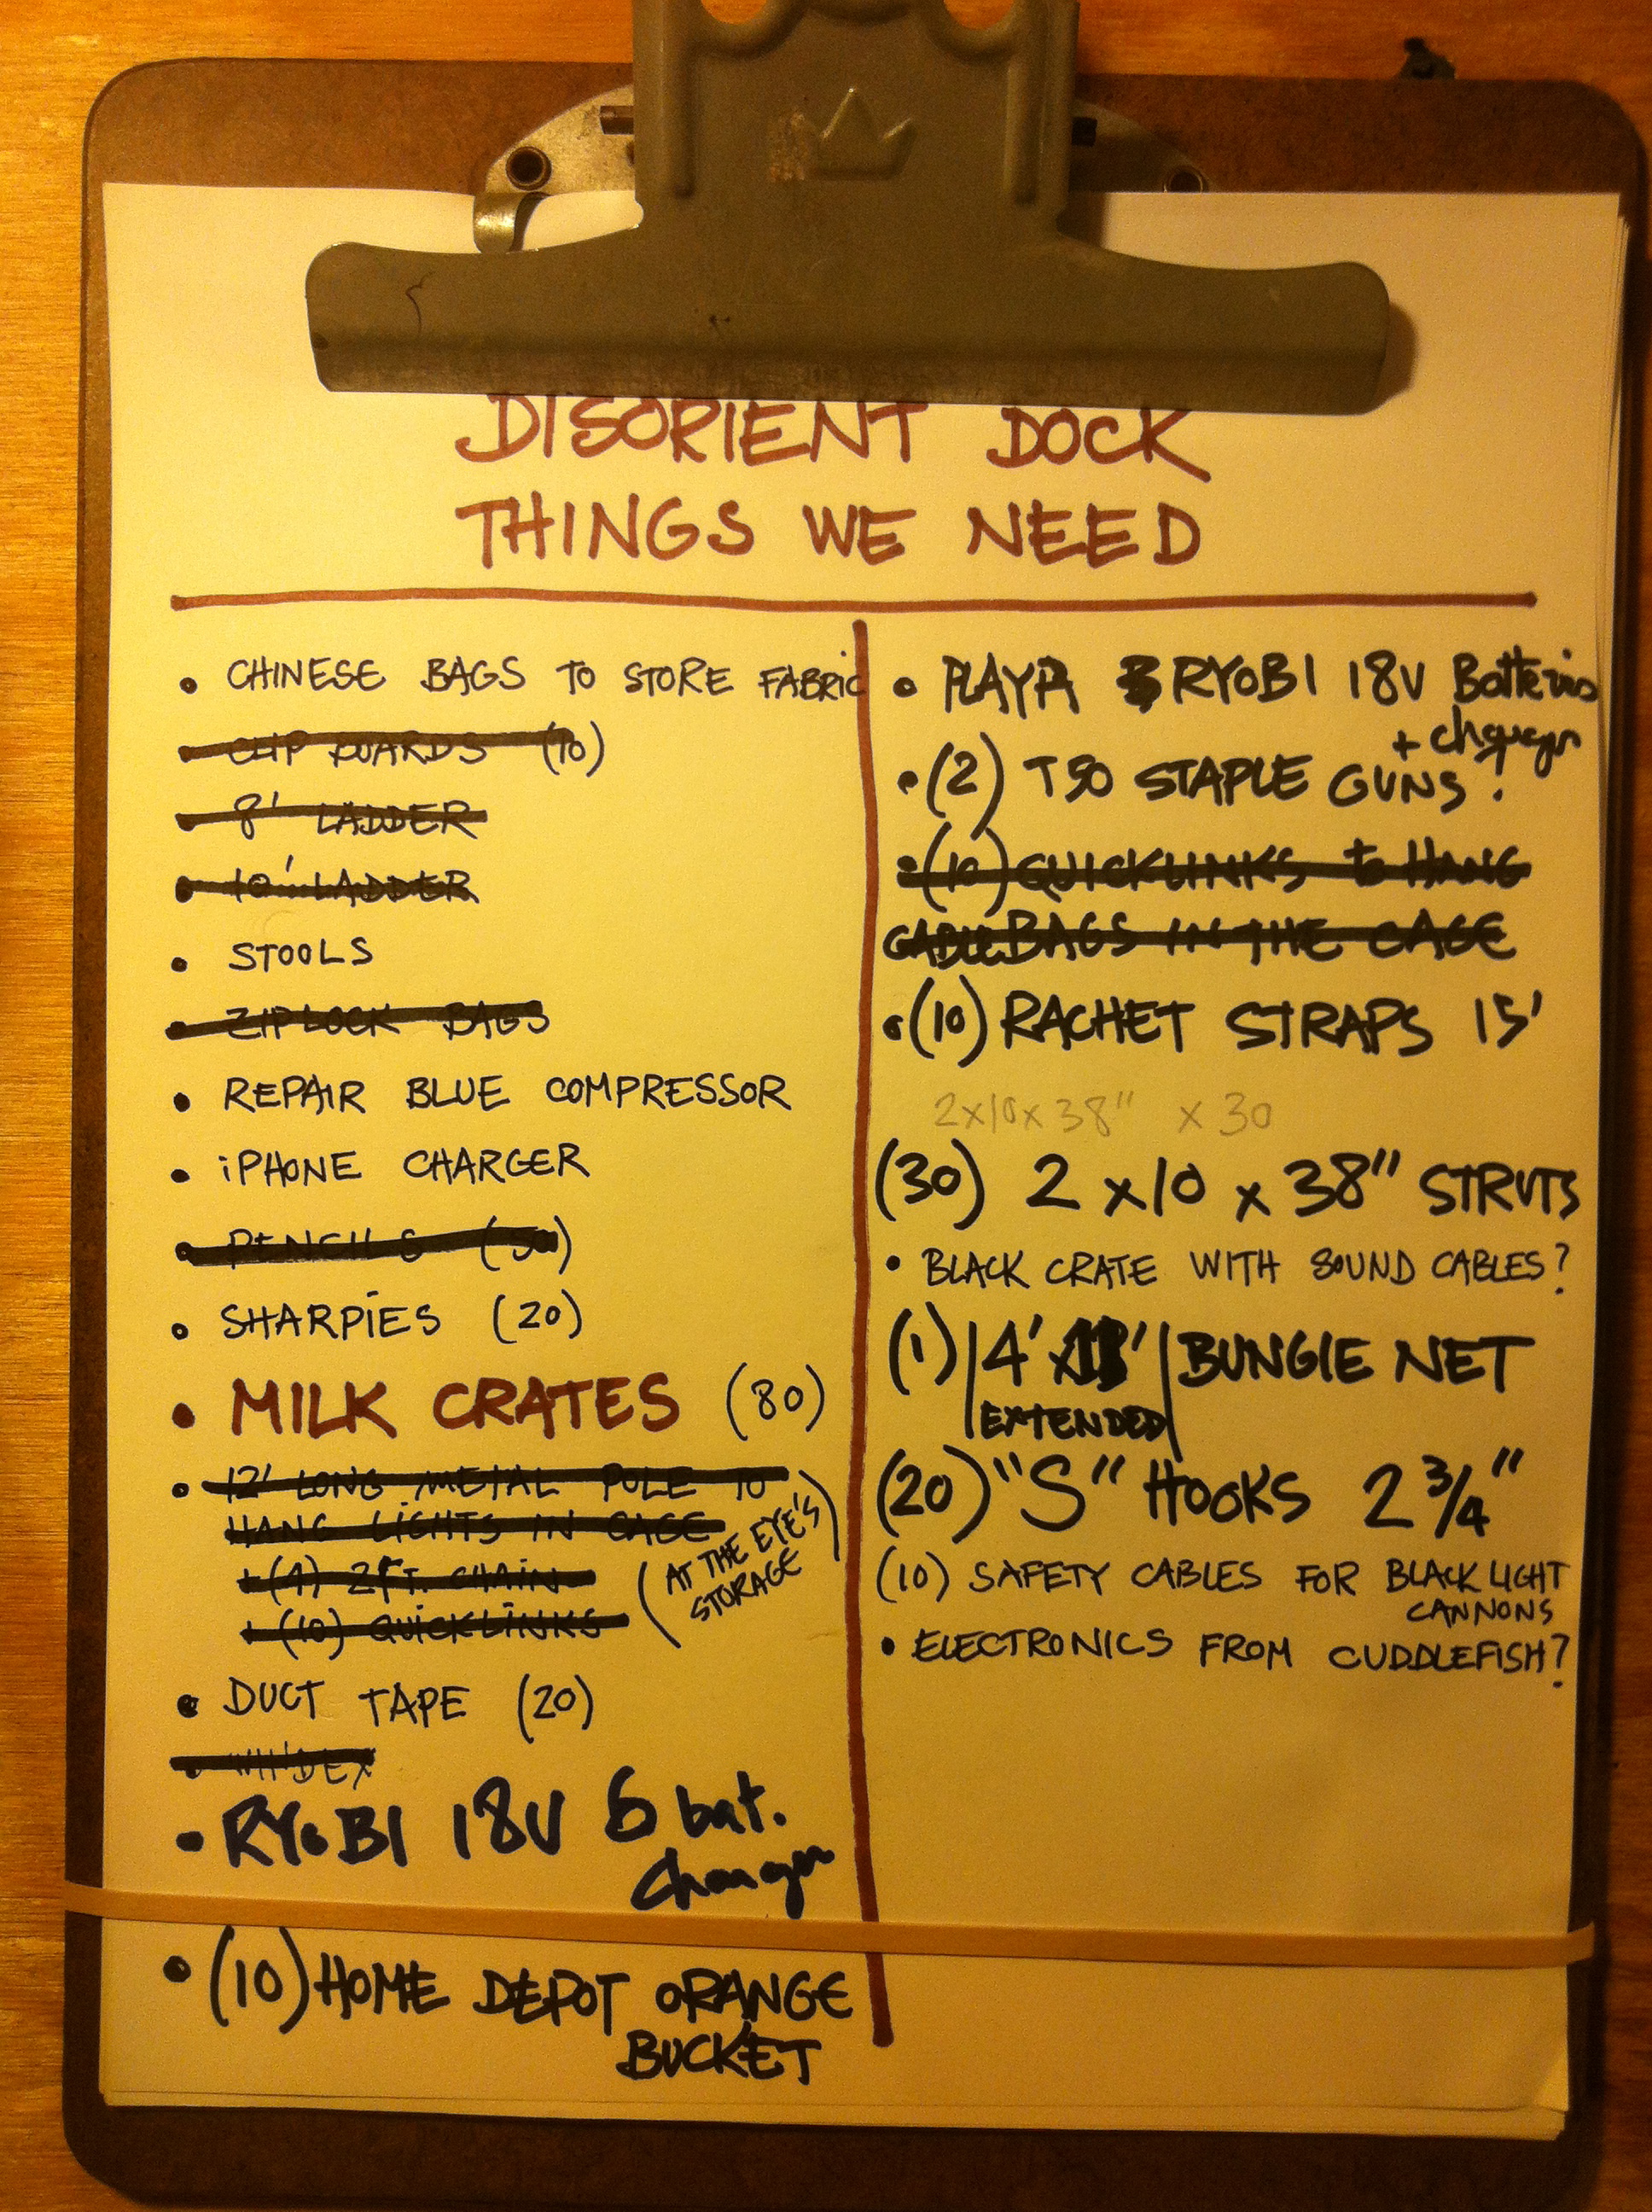 DISORIENT DOCK
THINGS WE NEED
• CHINESE BAGS TO STORE FABRIC
• CLIP BOARDS (10)
• 8' LADDER
• 10' LADDER
• STOOLS
• ZIPLOCK BAGS
• REPAIR BLUE COMPRESSOR
• iPHONE CHARGER
• PENCILS (50)
• SHARPIES (20)
• MILK CRATES (80)
• 12' LONG METAL POLE TO
HANG LIGHTS IN CAGE
+ (4) 2 FT. CHAIN
+ (10) QUICKLINKS
(AT THE EYE'S
STORAGE)
• DUCT TAPE (20)
• WINDEX
• RYOBI 18V 6 bat.
Charger
• (10) HOME DEPOT ORANGE
BUCKET
• PLAYA 3 RYOBI 18V Batteries
+ charger
• (2) T50 STAPLE GUNS!
• (10) QUICKLINKS to HANG
CABLE BAGS IN THE CAGE
• (10) RACHET STRAPS 15'
2x10x38" x 30
(30) 2 x 10 x 38" STRUTS
• BLACK CRATE WITH SOUND CABLES?
(1) 4' BUNGIE NET
EXTENDED
(20) "S" HOOKS 2 3/4"
(10) SAFETY CABLES FOR BLACKLIGHT
CANNONS
• ELECTRONICS FROM CUDDLEFISH?